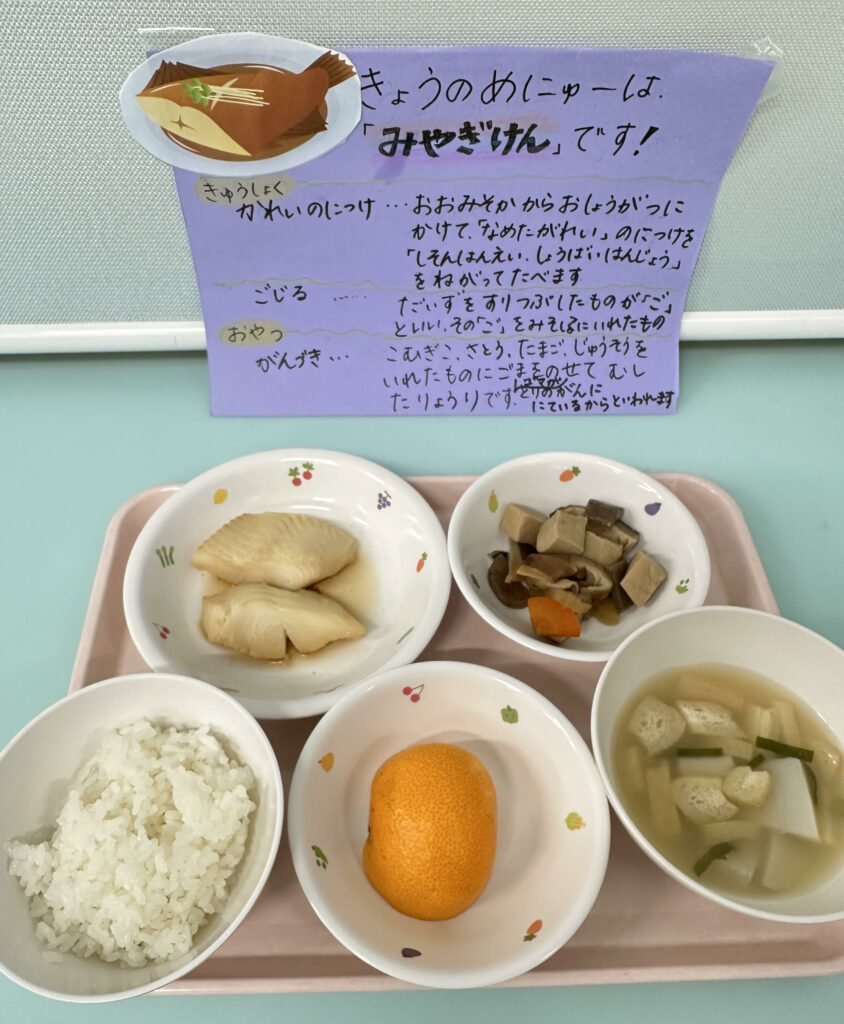 きょうのめにゅーは、
「みやぎけん」です!
きゅうしょく
かれいのにつけ…おおみそかからおしょうがつに
かけて、「なめたがれい」のにつけを
「しそんはんえい、しょうばいはんじょう」
をねがってたべます
ごじる……だいずをすりつぶしたものが「ご」
といい、その「ご」をみそしるにいれたもの
おやつ
がんづき…こむぎこ、さとう、たまご、じゅうそうを
いれたものにごまをのせてむし
たりょうりです。とりのがんに
にているからといわれます